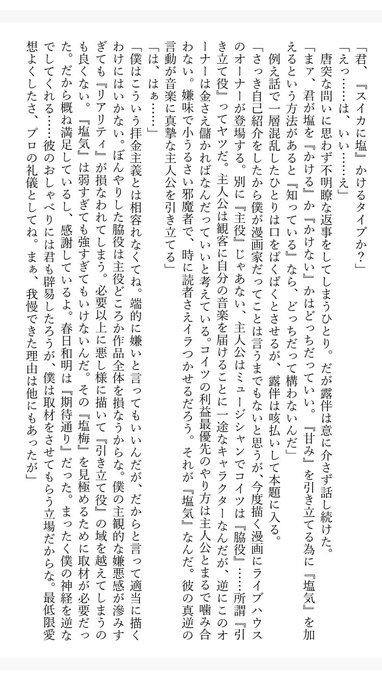 「君、『スイカに塩』かけるタイプか？」
「えっ……は、いい……え」
　唐突な問いに思わず不明瞭な返事をしてしまうひとり。だが露伴は意に介さず話し続けた。
「まァ、君が塩を『かける』か『かけない』かはどっちだっていい。『甘み』を引き立てる為に『塩気』を加
えるという方法があると『知っている』なら、どっちだって構わないんだ」
　例え話で一層混乱したひとりは口をぱくぱくとさせるが、露伴は咳払いして本題に入る。
「さっき自己紹介をしたから僕が漫画家だってことは言うまでもないと思うが、今度描く漫画にライブハウス
のオーナーが登場する。別に『主役』じゃあない、主人公はミュージシャンでコイツは『脇役』……所謂『引
き立て役』ってヤツだ。主人公は観客に自分の音楽を届けることに一途なキャラクターなんだが、逆にこのオ
ーナーは金さえ儲かればなんだっていいと考えている。コイツの利益最優先のやり方は主人公とまるで噛み合
わない。嫌味で小うるさい邪魔者で、時に読者さえイラつかせるだろう。それが『塩気』なんだ。彼の真逆の
言動が音楽に真摯な主人公を引き立てる」
「は、はぁ……」
「僕はこういう拝金主義とは相容れなくてね。端的に嫌いと言ってもいいんだが、だからと言って適当に描く
わけにはいかない。ぼんやりした脇役は主役どころか作品全体を損なうからな。僕の主観的な嫌悪感が滲みす
ぎても『リアリティ』が損なわれてしまう。必要以上に悪し様に描いて『引き立て役』の域を越えてしまうの
も良くない。『塩気』は弱すぎても強すぎてもいけないんだ。その『塩梅』を見極めるために取材が必要だっ
た。だから概ね満足しているし、感謝しているよ。春日和明は『期待通り』だった。まったく僕の神経を逆な
でしてくれる……彼のおしゃべりには君も辟易したろうが、僕は取材をさせてもらう立場だからな。最低限愛
想よくしたさ、プロの礼儀としてね。まぁ、我慢できた理由は他にもあったが」